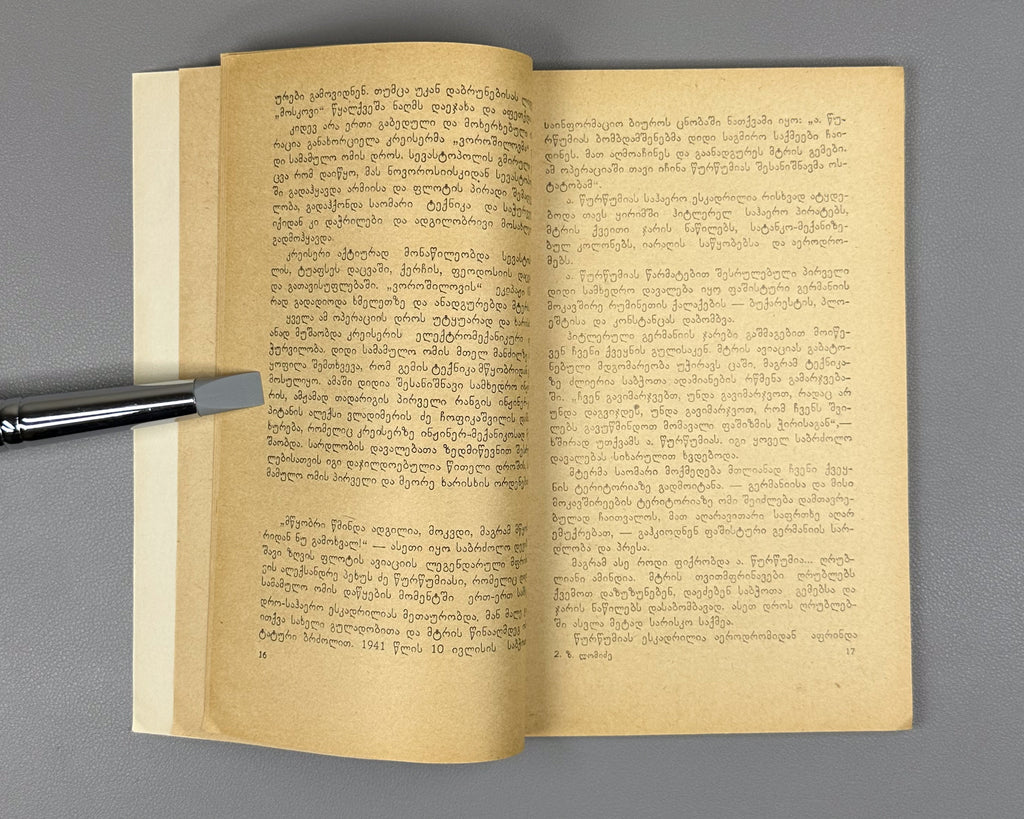 ურები გამოვიდნენ. თუმცა უკან დაბრუნებისას
„მოსკოვი“ წყალქვეშა ნაღმს დაეჯახა და
კიდევ არა ერთი გაბედული და მოხერხებული
რაცია განახორციელა კრეისერმა „ვოროშილოვმა“
დი სამამულო ომის დროს. სევასტოპოლის გმირული
ცვა რომ დაიწყო, მას ნოვოროსიისკიდან
ში გადაჰყავდა არმიისა და ფლოტის პირადი
ლობა, გადაჰქონდა საომარი ტექნიკა და
იქიდან კი დაჭრილები და ადგილობრივი
გადმოჰყავდა.
კრეისერი აქტიურად მონაწილეობდა
ლის, ტუაფსეს დაცვაში, ქერჩის, ფეოდოსიის
და გათავისუფლებაში. „ვოროშილოვის“ ეკიპაჟი
რად გადადიოდა ხმელეთზე და ანადგურებდა
ყველა ამ ოპერაციის დროს უტყუარად და
ანად მუშაობდა კრეისერის ელექტრომექანიკური
ჭურვილობა. დიდი სამამულო ომის მთელ მანძილზე
ყოფილა შემთხვევა, რომ გემის ტექნიკა
მოსულიყო. ამაში დიდია შესანიშნავი სამხედრო
რის, ამჟამად თადარიგის პირველი რანგის
პიტანის ალექსი ვლადიმერის ძე ჩოფიკაშვილის
ხურება, რომელიც კრეისერზე ინჟინერ-მექანიკოსად
შაობდა. სარდლობის დავალებათა ზედმიწევნით
ლებისათვის იგი დაჯილდოებულია წითელი დროშის,
მამულო ომის პირველი და მეორე ხარისხის ორდენებით
„მწყობრი წმინდა ადგილია, მოკვდი, მაგრამ
რიდან ნუ გამოხვალ!“ — ასეთი იყო საბრძოლო
შავი ზღვის ფლოტის ავიაციის ლეგენდარული
ვის ალექსანდრე პეხუს ძე წურწუმიასი, რომელიც
სამამულო ომის დაწყების მომენტში ერთ-ერთ
დრო-საჰაერო ესკადრილიას მეთაურობდა, მან მალე
ითქვა სახელი გულადობითა და მტრის წინააღმდეგ
ტატური ბრძოლით. 1941 წლის 10 ივლისის
16
საინფორმაციო ბიუროს ცნობაში ნათქვამი იყო: „ა. წუ-
რწუმიას ბომბდამშენებმა დიდი საგმირო საქმეები ჩაი-
დინეს. მათ აღმოაჩინეს და გაანადგურეს მტრის გემები.
ამ ოპერაციაში თავი იჩინა წურწუმიას შესანიშნავმა ოს-
ტატობამ“.
ა. წურწუმიას საჰაერო ესკადრილია რისხვად ატყდე-
ბოდა თავს ყირიმში ჰიტლერელ საჰაერო პირატებს,
მტრის ქვეითი ჯარის ნაწილებს, სატანკო-მექანიზე-
ბულ კოლონებს, იარაღის საწყობებსა და აეროდრო-
მებს.
ა. წურწუმიას წარმატებით შესრულებული პირველი
დიდი სამხედრო დავალება იყო ფაშისტური გერმანიის
მოკავშირე რუმინეთის ქალაქების — ბუქარესტის, პლო-
ეშტისა და კონსტანცას დაბომბვა.
ჰიტლერული გერმანიის ჯარები გაშმაგებით მოიწე-
ვენ ჩვენი ქვეყნის გულისაკენ. მტრის ავიაციას გაბატო-
ნებული მდგომარეობა უჭირავს ცაში, მაგრამ ტექნიკა-
ზე ძლიერია საბჭოთა ადამიანების რწმენა გამარჯვება-
ში. „ჩვენ გავიმარჯვებთ, უნდა გავიმარჯვოთ, რადაც არ
უნდა დაგვიჯდეს, უნდა გავიმარჯვოთ, რომ ჩვენს შვი-
ლებს გავუწმინდოთ მომავალი ფაშიზმის ჭირისაგან“,—
ხშირად უთქვამს ა. წურწუმიას. იგი ყოველ საბრძოლო
დავალებას სიხარულით ხვდებოდა.
მტერმა საომარი მოქმედება მთლიანად ჩვენი ქვეყ-
ნის ტერიტორიაზე გადმოიტანა. — გერმანიისა და მისი
მოკავშირეების ტერიტორიაზე ომი შეიძლება დამთავრე-
ბულად ჩაითვალოს, მათ აღარავითარი საფრთხე აღარ
ემუქრებათ, — გაჰკიოდნენ ფაშისტური გერმანიის სარ-
დლობა და პრესა.
მაგრამ ასე როდი ფიქრობდა ა. წურწუმია... ღრუბ-
ლიანი ამინდია. მტრის თვითმფრინავები ღრუბლებს
ქვემოთ დაზუზუნებენ, დაეძებენ საბჭოთა გემებსა და
ჯარის ნაწილებს დასაბომბავად. ასეთ დროს ღრუბლებ-
ში ასვლა მეტად სარისკო საქმეა.
წურწუმიას ესკადრილია აეროდრომიდან აფრინდა
2. ზ. ლომიძე
17